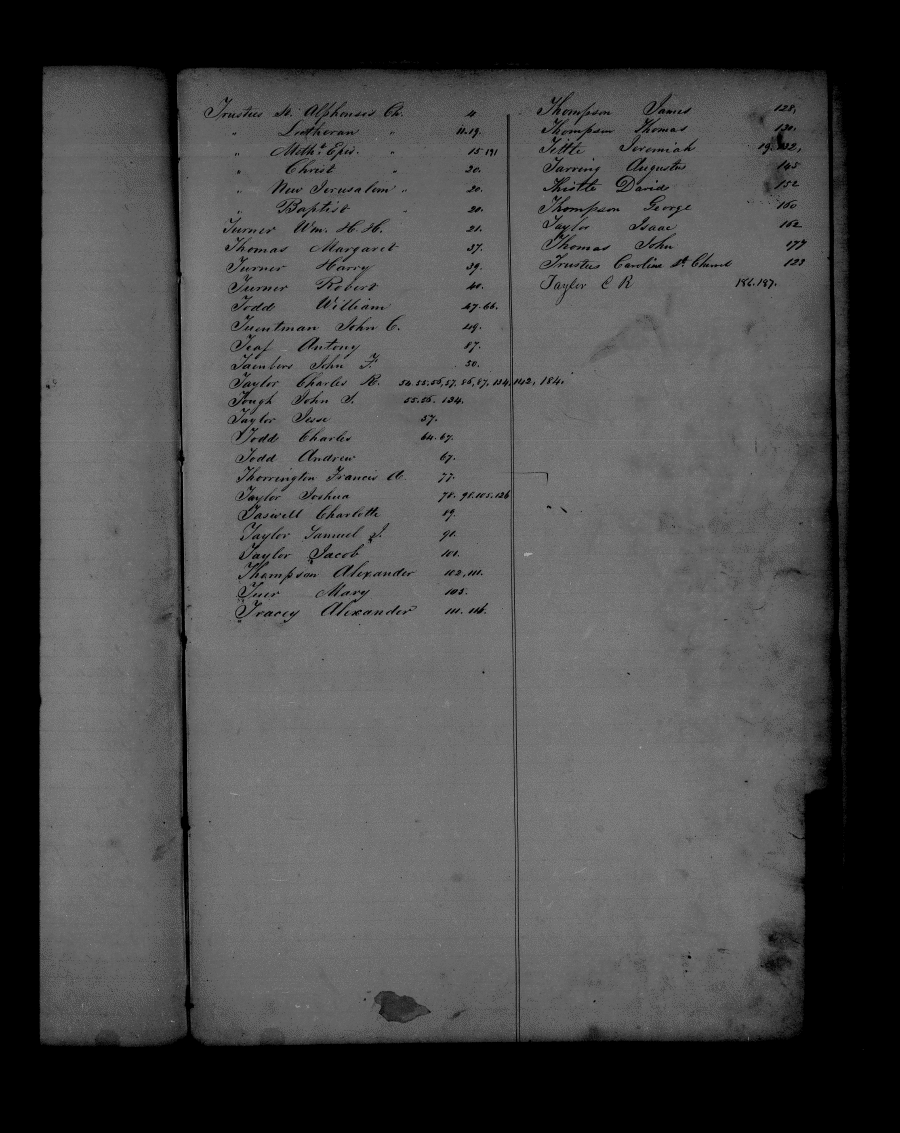 Trustees St. Alphonsis Ch. 4
" Lutheran " 11.19.
" Meth. Epis. " 15.191
" Christ " 20.
" New Jerusalem " 20.
" Baptist " 20.
Turner Wm. H. H. 21.
Thomas Margaret 37.
Turner Harry 39.
Turner Robert 40.
Todd William 47.66.
Tuentman John C. 49.
Teaf Antony 87.
John F. 50.
Taylor Charles R. 54.55.56,57.86,87,134,142,184.
Tough John S. 55.56.134.
Taylor Jesse 57.
Todd Charles 64.67.
Todd Andrew 67.
Thorrington Francis A. 77.
Taylor Joshua 78.98.105.126
Taswell Charlotte 89.
Taylor Samuel J. 91.
Taylor Jacob 101.
Thompson Alexander 102,111.
Tuer Mary 105.
Tracey Alexander 111.116.
Thompson James 128.
Thompson Thomas 130.
Tittle Jeremiah 19.132.
Tarring Augustus 145
Thistle David 152
Thompson George 160
Taylor Isaac 162
Thomas John 177
Trustees Caroline St. Church 123
Taylor C R 186.187.